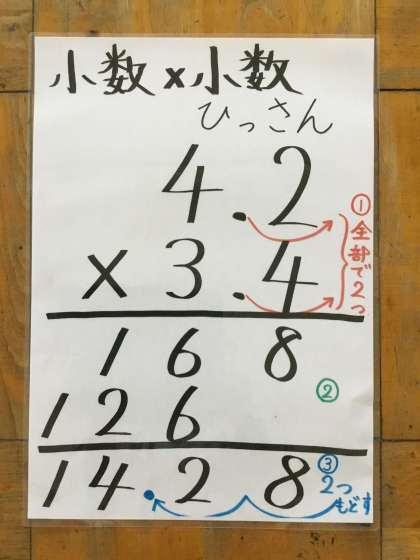 小数×小数
ひっさん
4.2
×3.4
①全部で2つ
168
②
126
14.28
③2つもどす